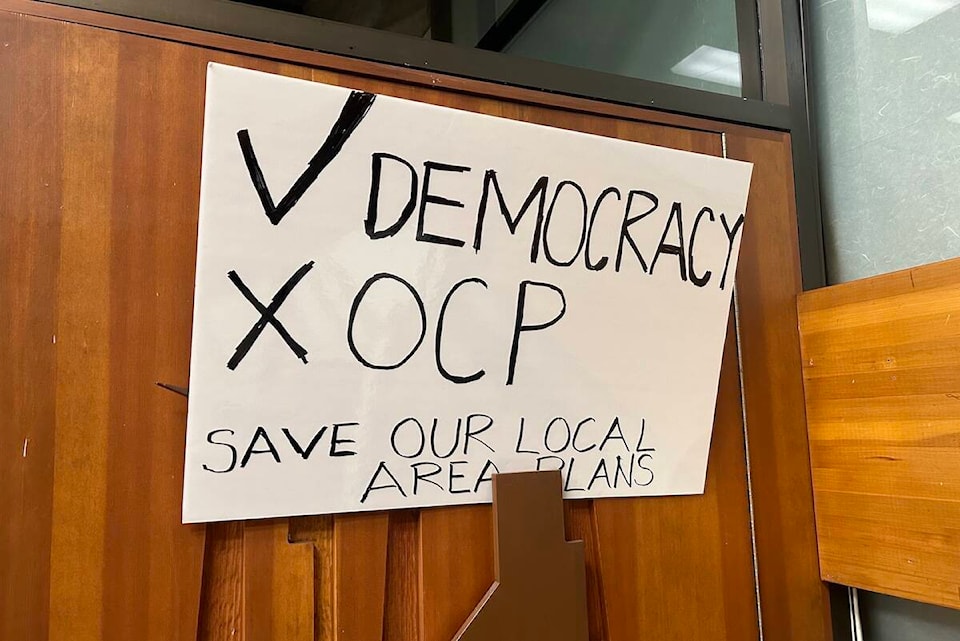 ✓ DEMOCRACY
X OCP
SAVE OUR LOCAL
AREA PLANS